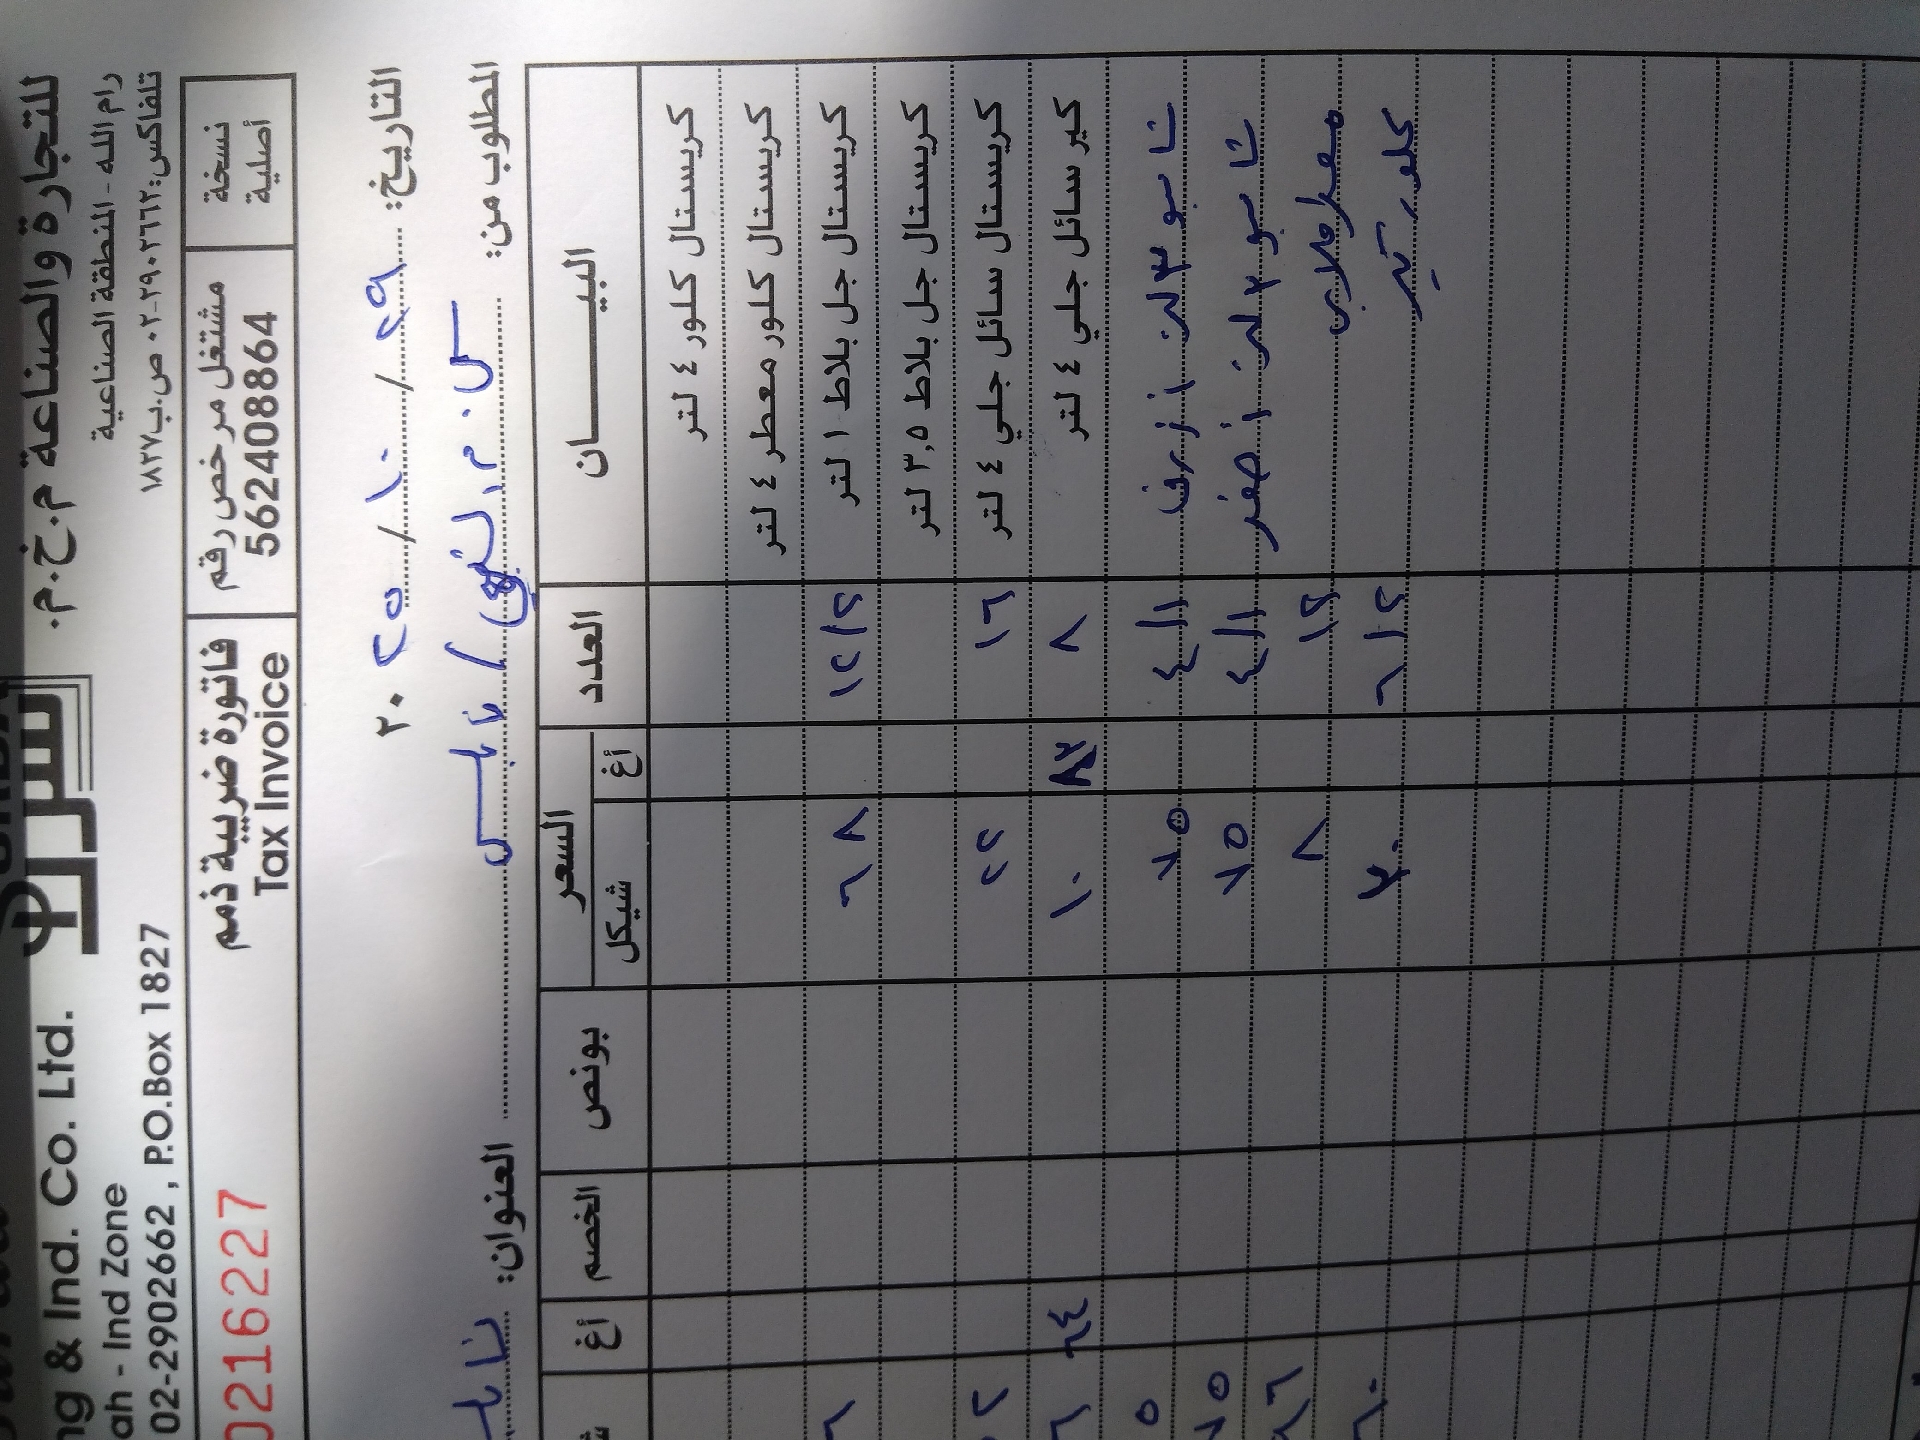 للتجارة والصناعة م.خ.م.
رام الله - المنطقة الصناعية
تلفاكس: ٢٩٠٢٦٦٢-٠٢ ص.ب ١٨٢٧
ng & Ind. Co. Ltd.
ah - Ind Zone
02-2902662 , P.O.Box 1827
نسخة أصلية
مشتغل مرخص رقم
562408864
فاتورة ضريبية ذمم
Tax Invoice
0216227
التاريخ: ٢٩ / ١٠ / ٢٠٢٥
المطلوب من: س.م. / نابلس العنوان:
البيــــان العدد السعر شيكل أغ بونص الخصم أغ
كريستال كلور ٤ لتر
كريستال كلور معطر ٤ لتر
كريستال جل بلاط ١ لتر ١٢/٢ ٦٨
كريستال جل بلاط ٣,٥ لتر
كريستال سائل جلي ٤ لتر ١٦ ٢٢
كير سائل جلي ٤ لتر ٨ ١٠ ٦٤
شامبو ٣ لتر ازرق ٤/١ ٧٥
شامبو ٣ لتر اصفر ٤/١ ٧٥
معطر ١٢ ٨
كلور ٦/٢